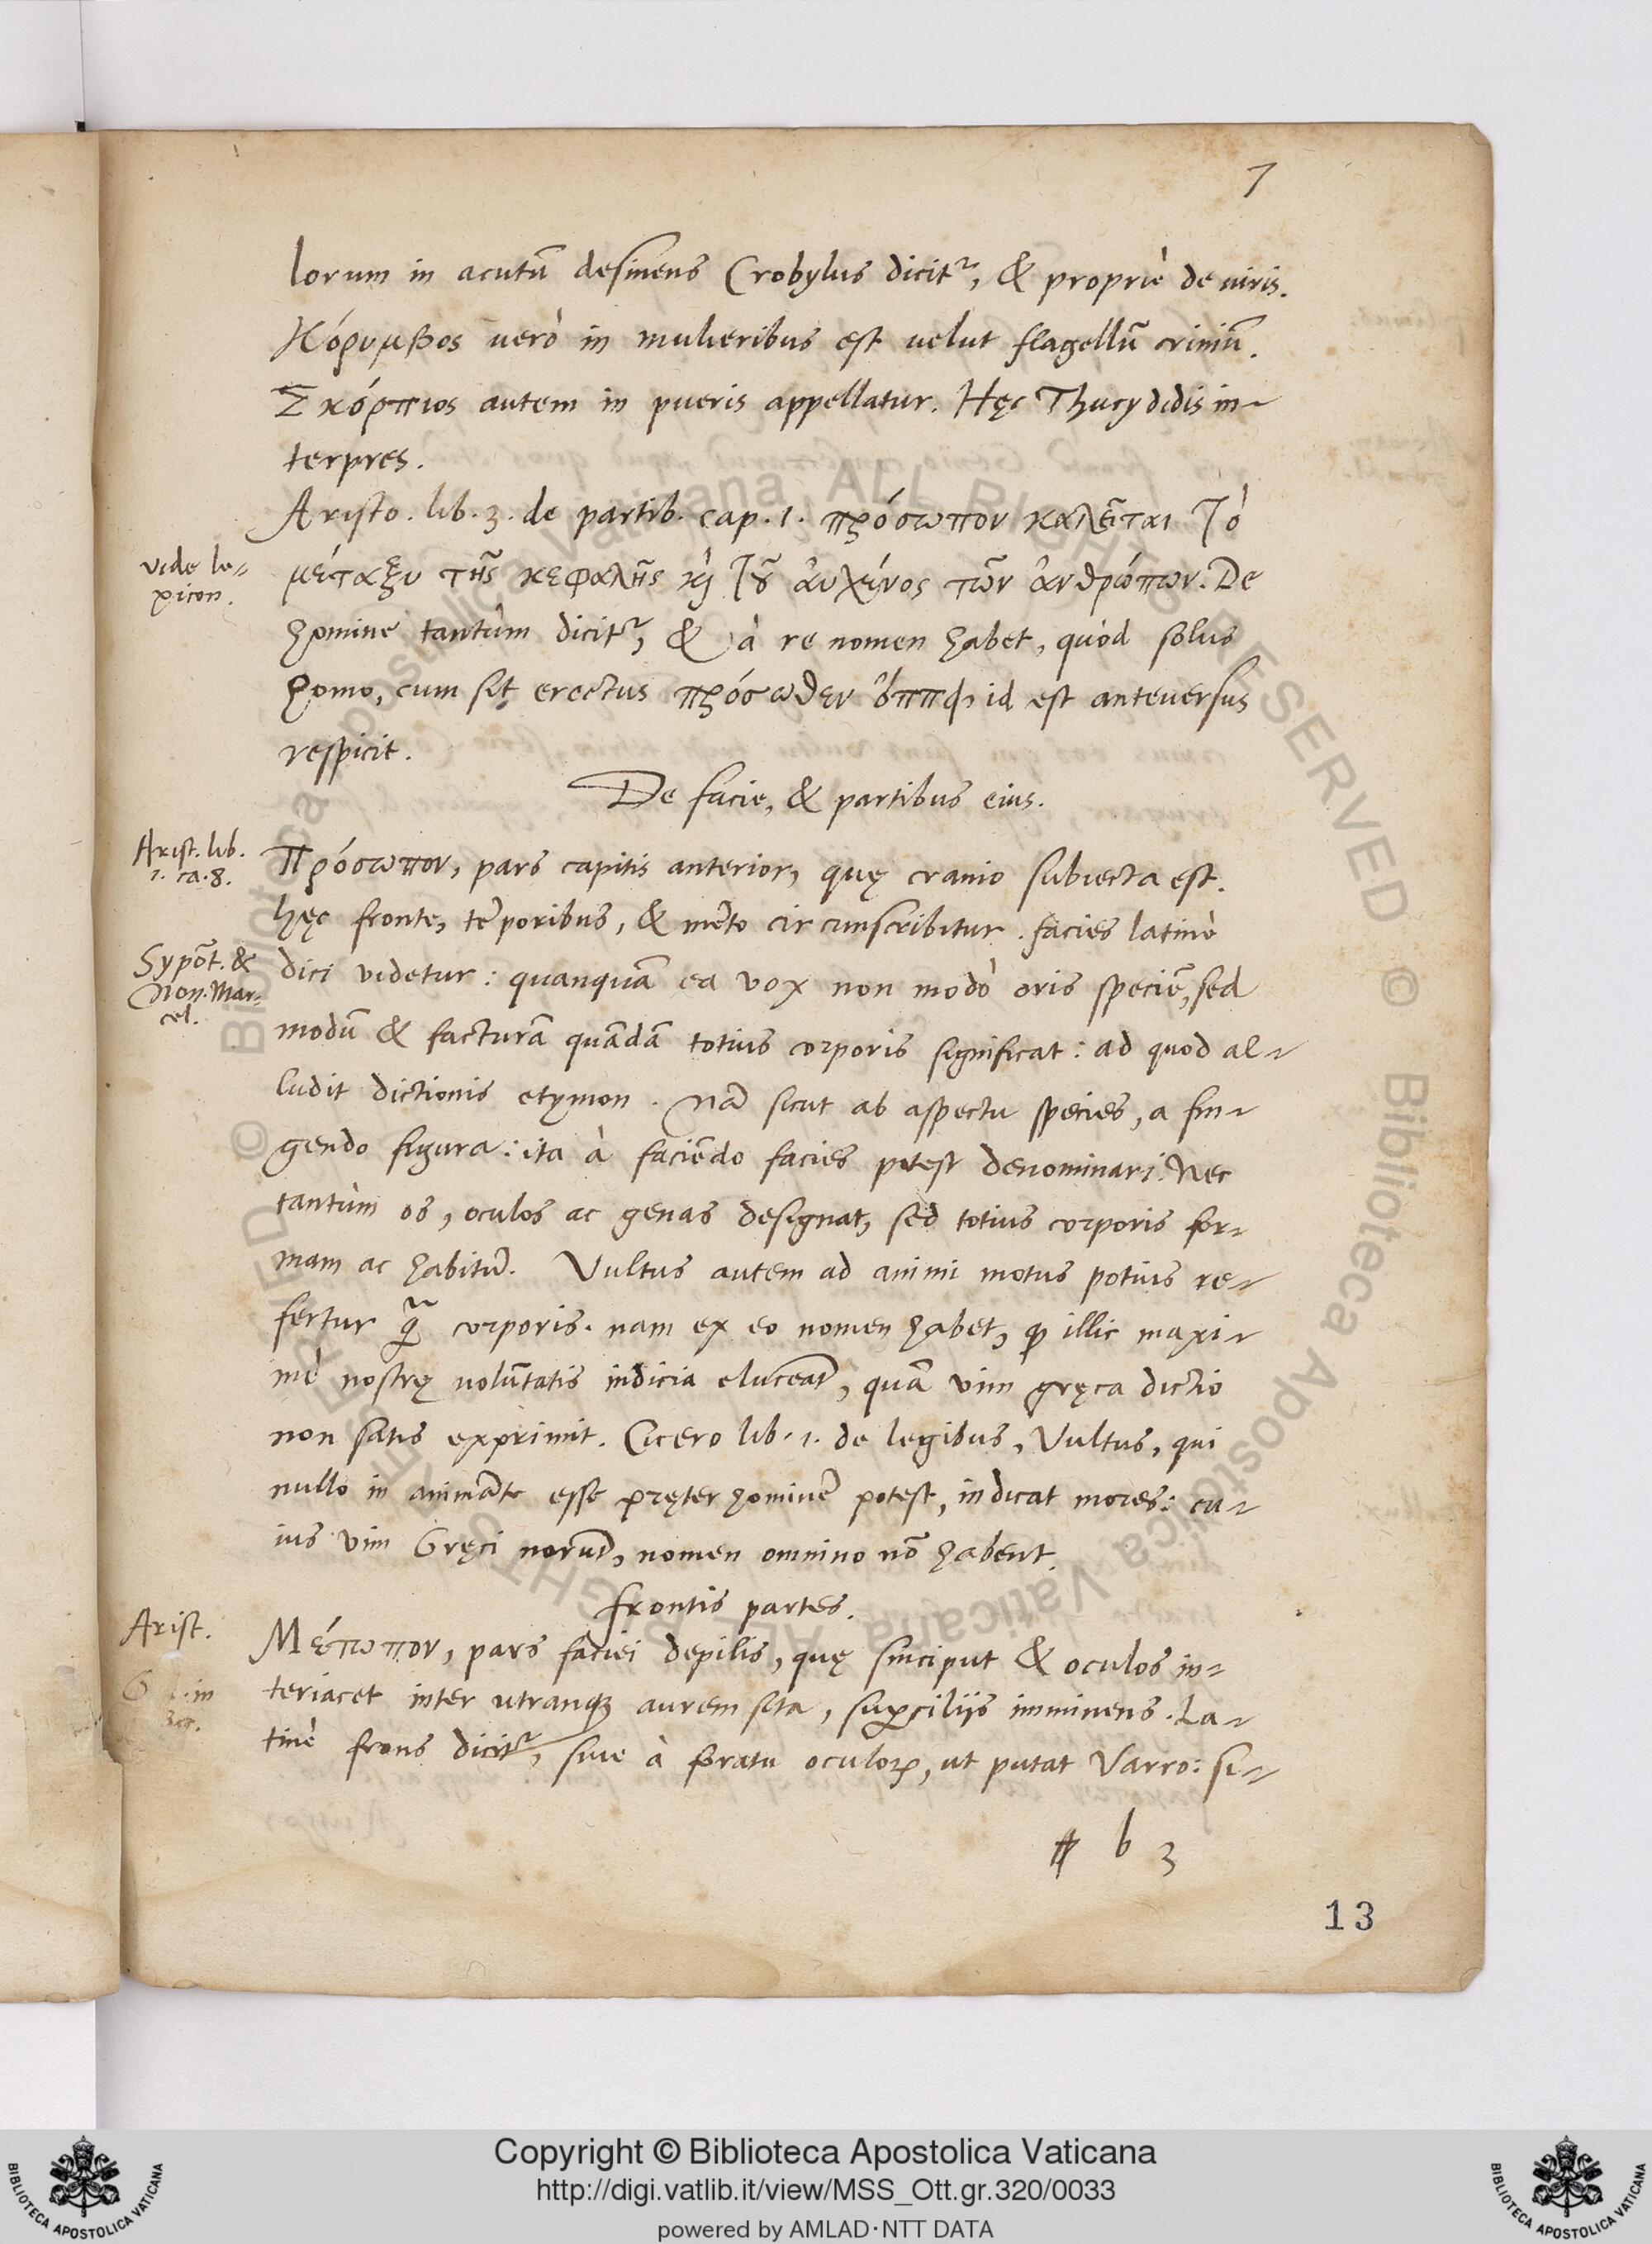 7
lorum in acutū desinens Crobylus dicitr, & propriè de uiris.
Κόρυμβος uerò in mulieribus est uelut flagellū criniū.
Σκόρπιος autem in pueris appellatur. Hęc Thucydidis in-
terpres.
Aristo. lib. 3. de partib. cap. 1. πρόσωπον καλεῖται τὸ
vide le-
xicon.
μέταξυ τῆς κεφαλῆς καὶ τοῦ ἀυχένος τῶν ἀνθρώπων. De
homine tantùm dicitr, & à re nomen habet, quòd solus
homo, cum sit erectus πρόσωθεν id est anteuersus
respicit.
De facie, & partibus eius.
Arist. lib.
1. ca. 8.
Πρόσωπον, pars capitis anterior, quę cranio subiecta est.
hęc fronte, tēporibus, & mēto circunscribitur. facies latinè
Sypōt. &
Non. Mar-
cel.
dici videtur: quanquā ea vox non modò oris speciē, sed
modū & facturā quādā totius corporis significat: ad quod al-
ludit dictionis etymon. Nā sicut ab aspectu species, a fin-
gendo figura: ita à faciēdo facies potest denominari. Nec
tantùm os, oculos ac genas designat, sed totius corporis for-
mam ac habitū. Vultus autem ad animi motus potius re-
fertur q̄ corporis. nam ex eo nomen habet, ꝙ illic maxi-
mè nostrę volūtatis indicia eluceāt, quā vim gręca dictio
non satis exprimit. Cicero lib. 1. de legibus, Vultus, qui
nullo in animāte esse pręter hominē potest, indicat mores: cu-
ius vim Gręci norūt, nomen omnino nō habent.
frontis partes.
Arist.
Μέτωπον, pars faciei depilis, quę sinciput & oculos in-
teriacet inter utranqꝫ aurem sita, suꝑciliis imminens. La-
tinè frons dicitr, siue à foratu oculoꝝ, ut putat Varro: si-
b 3
13
Copyright © Biblioteca Apostolica Vaticana
http://digi.vatlib.it/view/MSS_Ott.gr.320/0033
powered by AMLAD·NTT DATA
BIBLIOTECA APOSTOLICA VATICANA
BIBLIOTECA APOSTOLICA VATICANA